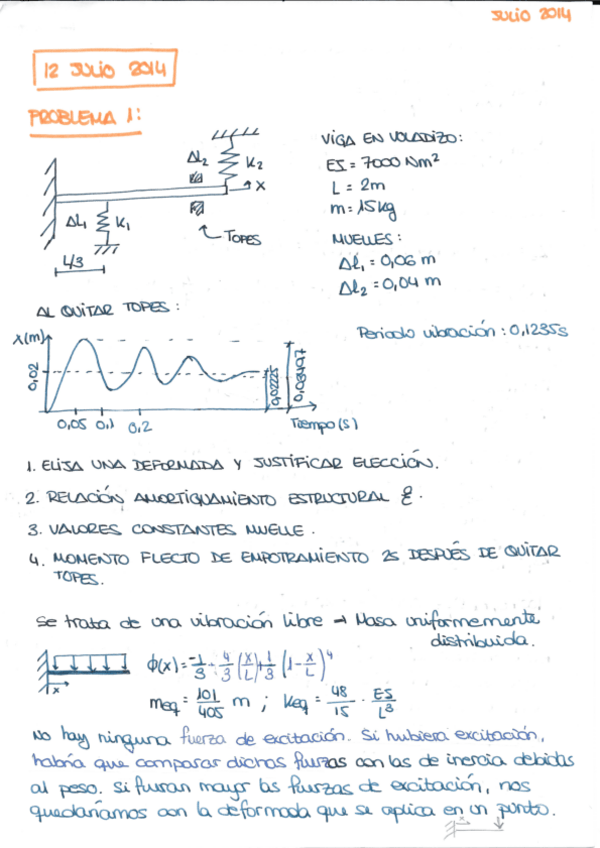 JULIO 2014
12 JULIO 2014
PROBLEMA 1:
ΔL2
K2
X
ΔL1
K1
TOPES
L/3
VIGA EN VOLADIZO:
EI = 7000 Nm²
L = 2m
m = 15 kg
MUELLES:
Δl1 = 0,06 m
Δl2 = 0,04 m
AL QUITAR TOPES:
Periodo vibración: 0,1235s
X(m)
0,02
0,02225
0,03497
0,05 0,1 0,2
Tiempo (s)
1. ELIJA UNA DEFORMADA Y JUSTIFICAR ELECCIÓN.
2. RELACIÓN AMORTIGUAMIENTO ESTRUCTURAL ξ.
3. VALORES CONSTANTES MUELLE.
4. MOMENTO FLECTO DE EMPOTRAMIENTO 2s DESPUÉS DE QUITAR
TOPES.
Se trata de una vibración libre → Masa uniformemente
distribuida.
x
ϕ(x) = -1/3 + 4/3 (x/L) + 1/3 (1 - x/L)⁴
meq = 101/405 m ; Keq = 48/15 · EI/L³
No hay ninguna fuerza de excitación. Si hubiera excitación,
habría que comparar dichas fuerzas con las de inercia debidas
al peso. Si fueran mayor las fuerzas de excitación, nos
quedaríamos con la deformada que se aplica en un punto.
x